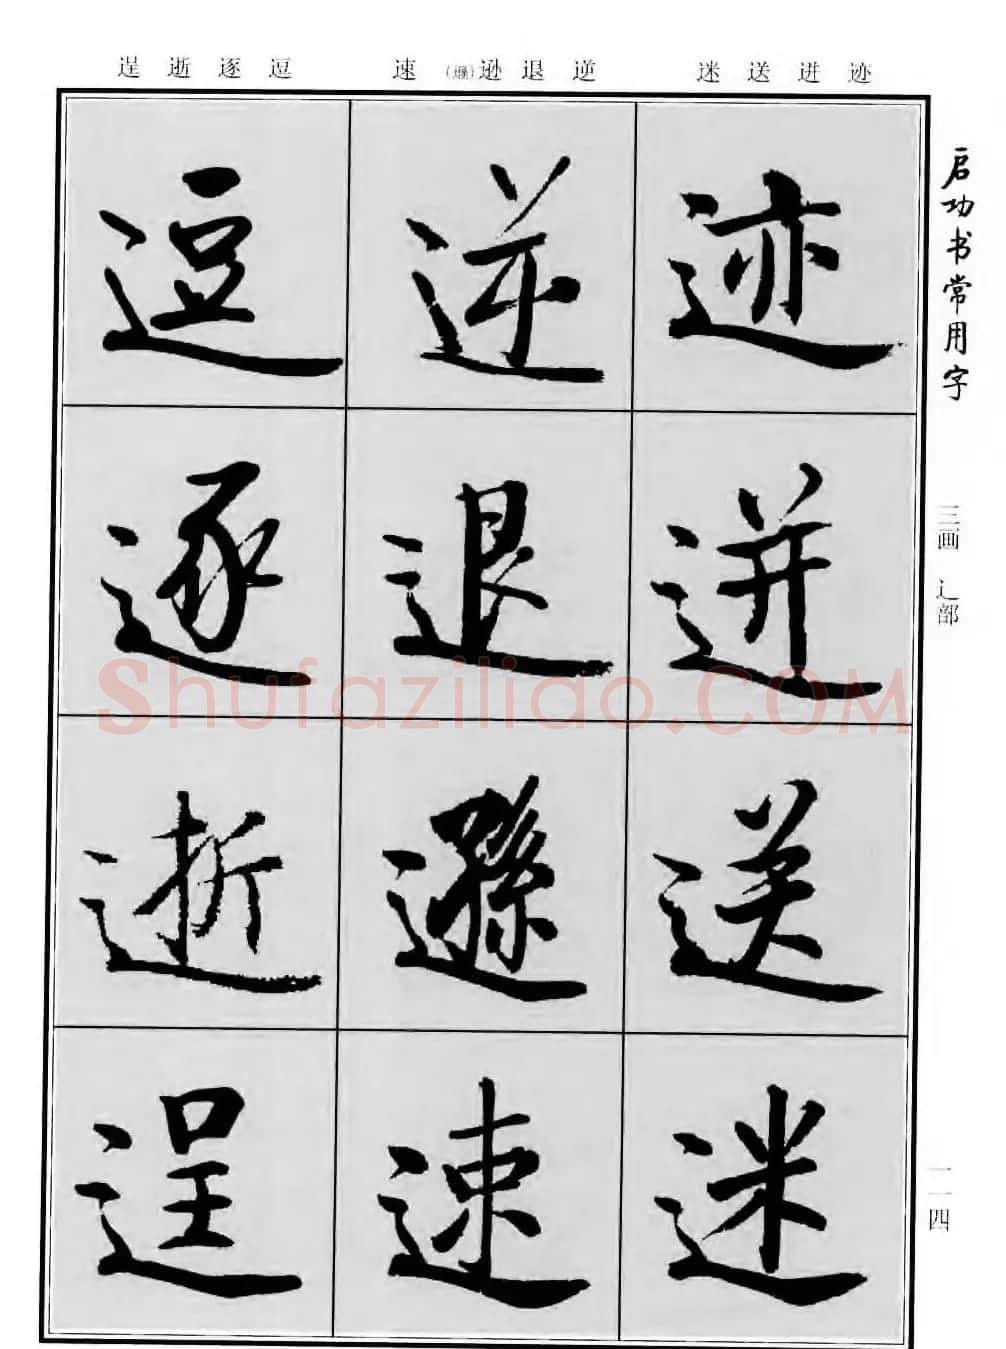 逞 逝 逐 逗 速 (遜)逊 退 逆 迷 送 迸 迹
启功书常用字
三画 辶部
一一四
迹
迸
送
迷
逆
退
遜
速
逗
逐
逝
逞
Shufaziliao.COM